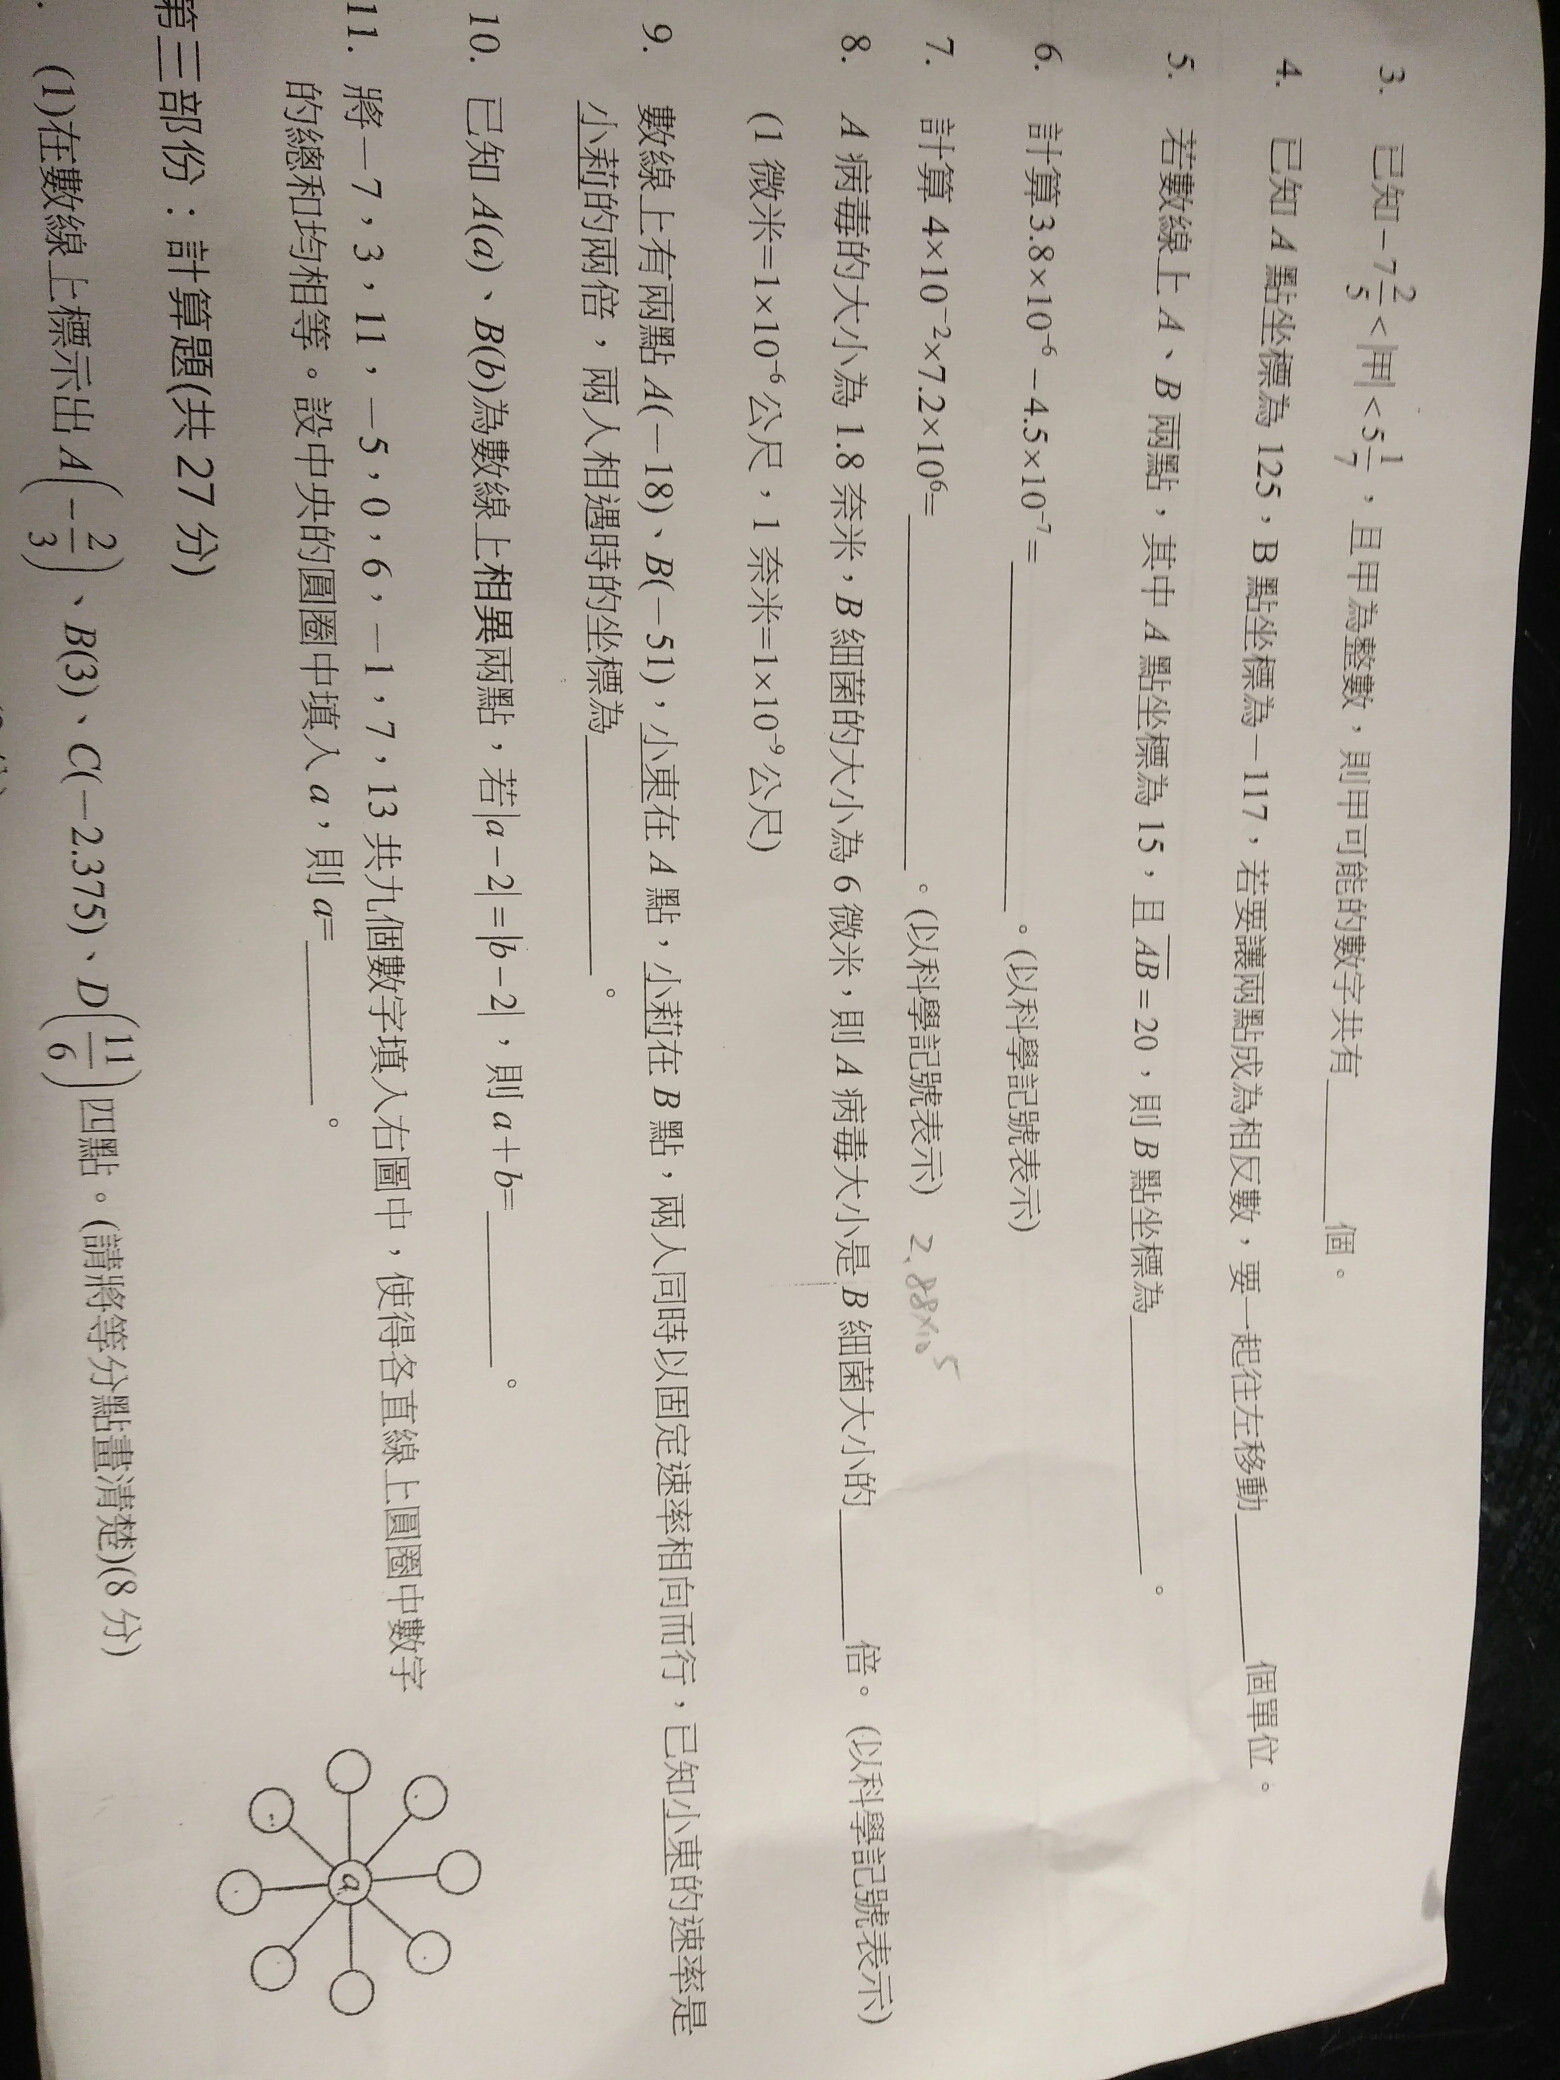 3. 已知－7 2/5＜|甲|＜5 1/7，且甲為整數，則甲可能的數字共有______個。
4. 已知 A 點坐標為 125，B 點坐標為－117，若要讓兩點成為相反數，要一起往左移動______個單位。
5. 若數線上 A、B 兩點，其中 A 點坐標為 15，且 A̅B̅＝20，則 B 點坐標為______。
6. 計算3.8×10⁻⁶－4.5×10⁻⁷＝______。(以科學記號表示)
7. 計算 4×10⁻²×7.2×10⁶=______。(以科學記號表示) 2.88×10⁵
8. A 病毒的大小為 1.8 奈米，B 細菌的大小為 6 微米，則 A 病毒大小是 B 細菌大小的______倍。(以科學記號表示)
(1 微米=1×10⁻⁶公尺，1 奈米=1×10⁻⁹公尺)
9. 數線上有兩點 A(－18)、B(－51)，小東在 A 點，小莉在 B 點，兩人同時以固定速率相向而行，已知小東的速率是
小莉的兩倍，兩人相遇時的坐標為______。
10. 已知 A(a)、B(b)為數線上相異兩點，若|a－2|＝|b－2|，則 a＋b=______。
11. 將－7，3，11，－5，0，6，－1，7，13 共九個數字填入右圖中，使得各直線上圓圈中數字
的總和均相等。設中央的圓圈中填入 a，則 a=______。
a
第三部份：計算題(共 27 分)
(1)在數線上標示出 A(－2/3)、B(3)、C(－2.375)、D(11/6)四點。(請將等分點畫清楚)(8 分)